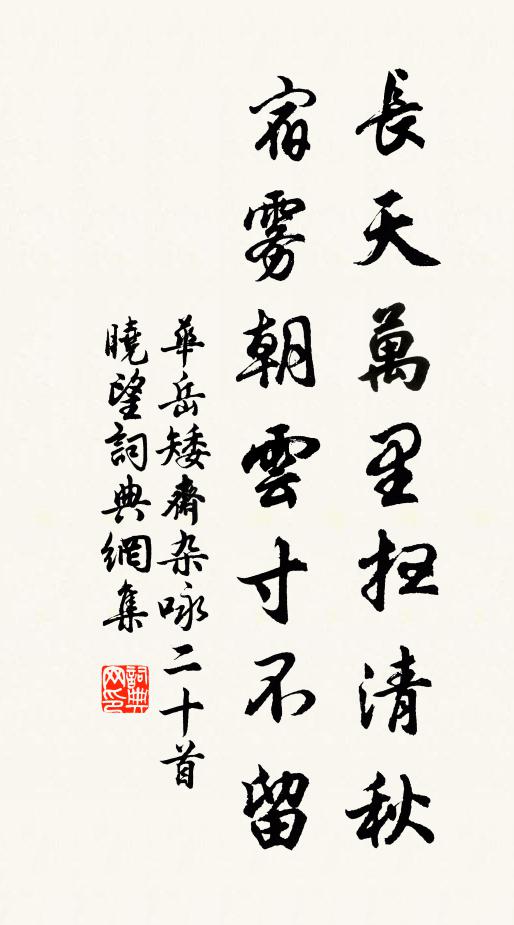 長天萬里扫清秋
宿雾朝雲寸不留
華岳矮齋杂咏二十首
曉望詞典網集
詞典网印